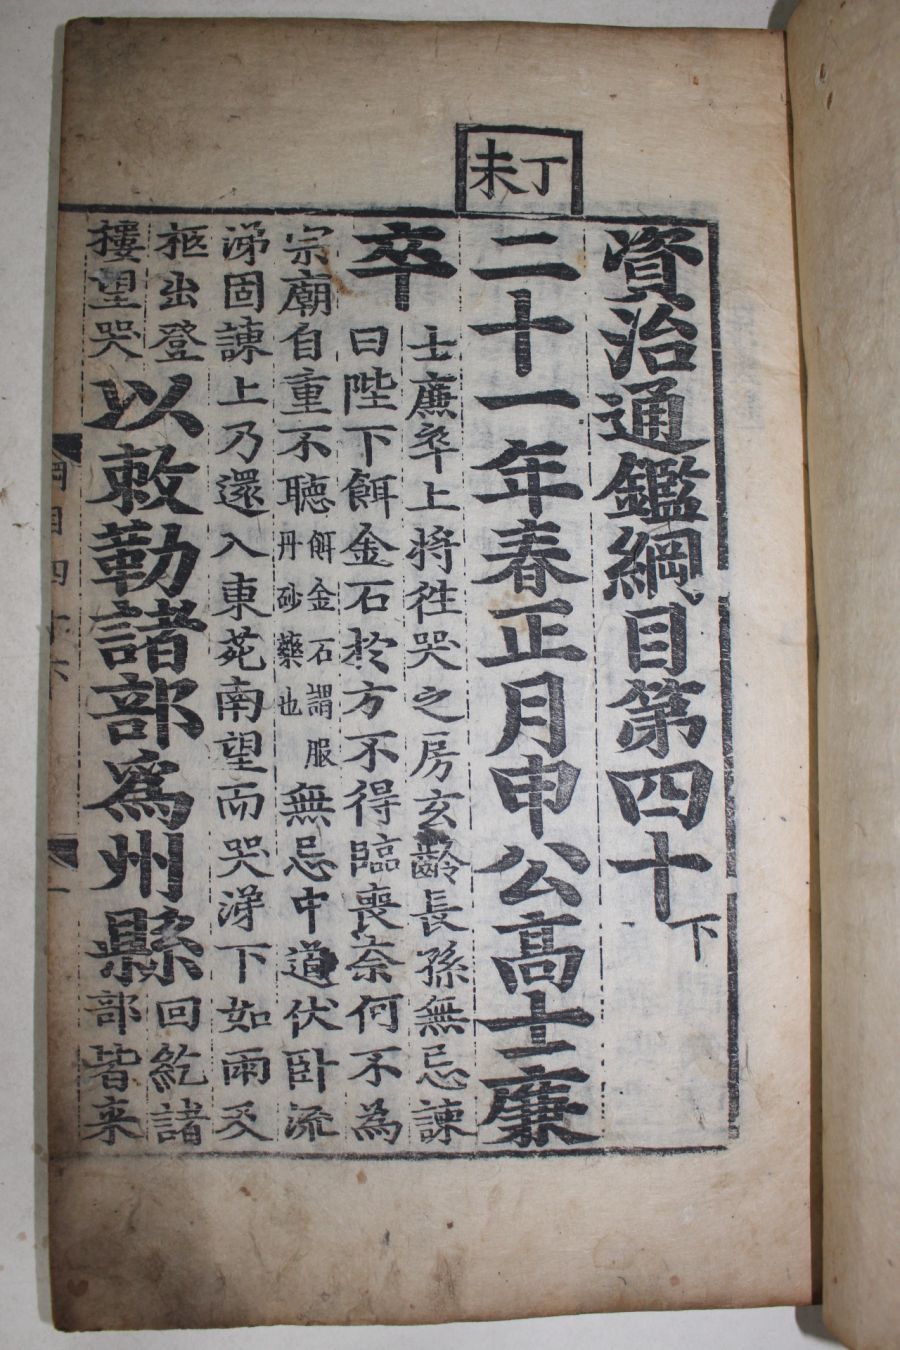 丁未
資治通鑑綱目第四十下
二十一年春正月申公高士廉
卒
士廉卒上將往哭之房玄齡長孫無忌諫
曰陛下餌金石於方不得臨喪奈何不為
宗廟自重不聽
餌金石謂服
丹砂藥也
無忌中道伏卧流
涕固諫上乃還入東苑南望而哭涕下如雨及
柩出登
樓望哭
以敕勒諸部爲州縣
回紇諸
部皆来